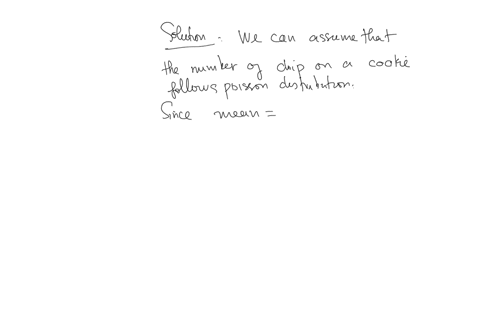 Solution: We can assume that
the number of chip on a cookie
follows poisson distribution.
Since mean =